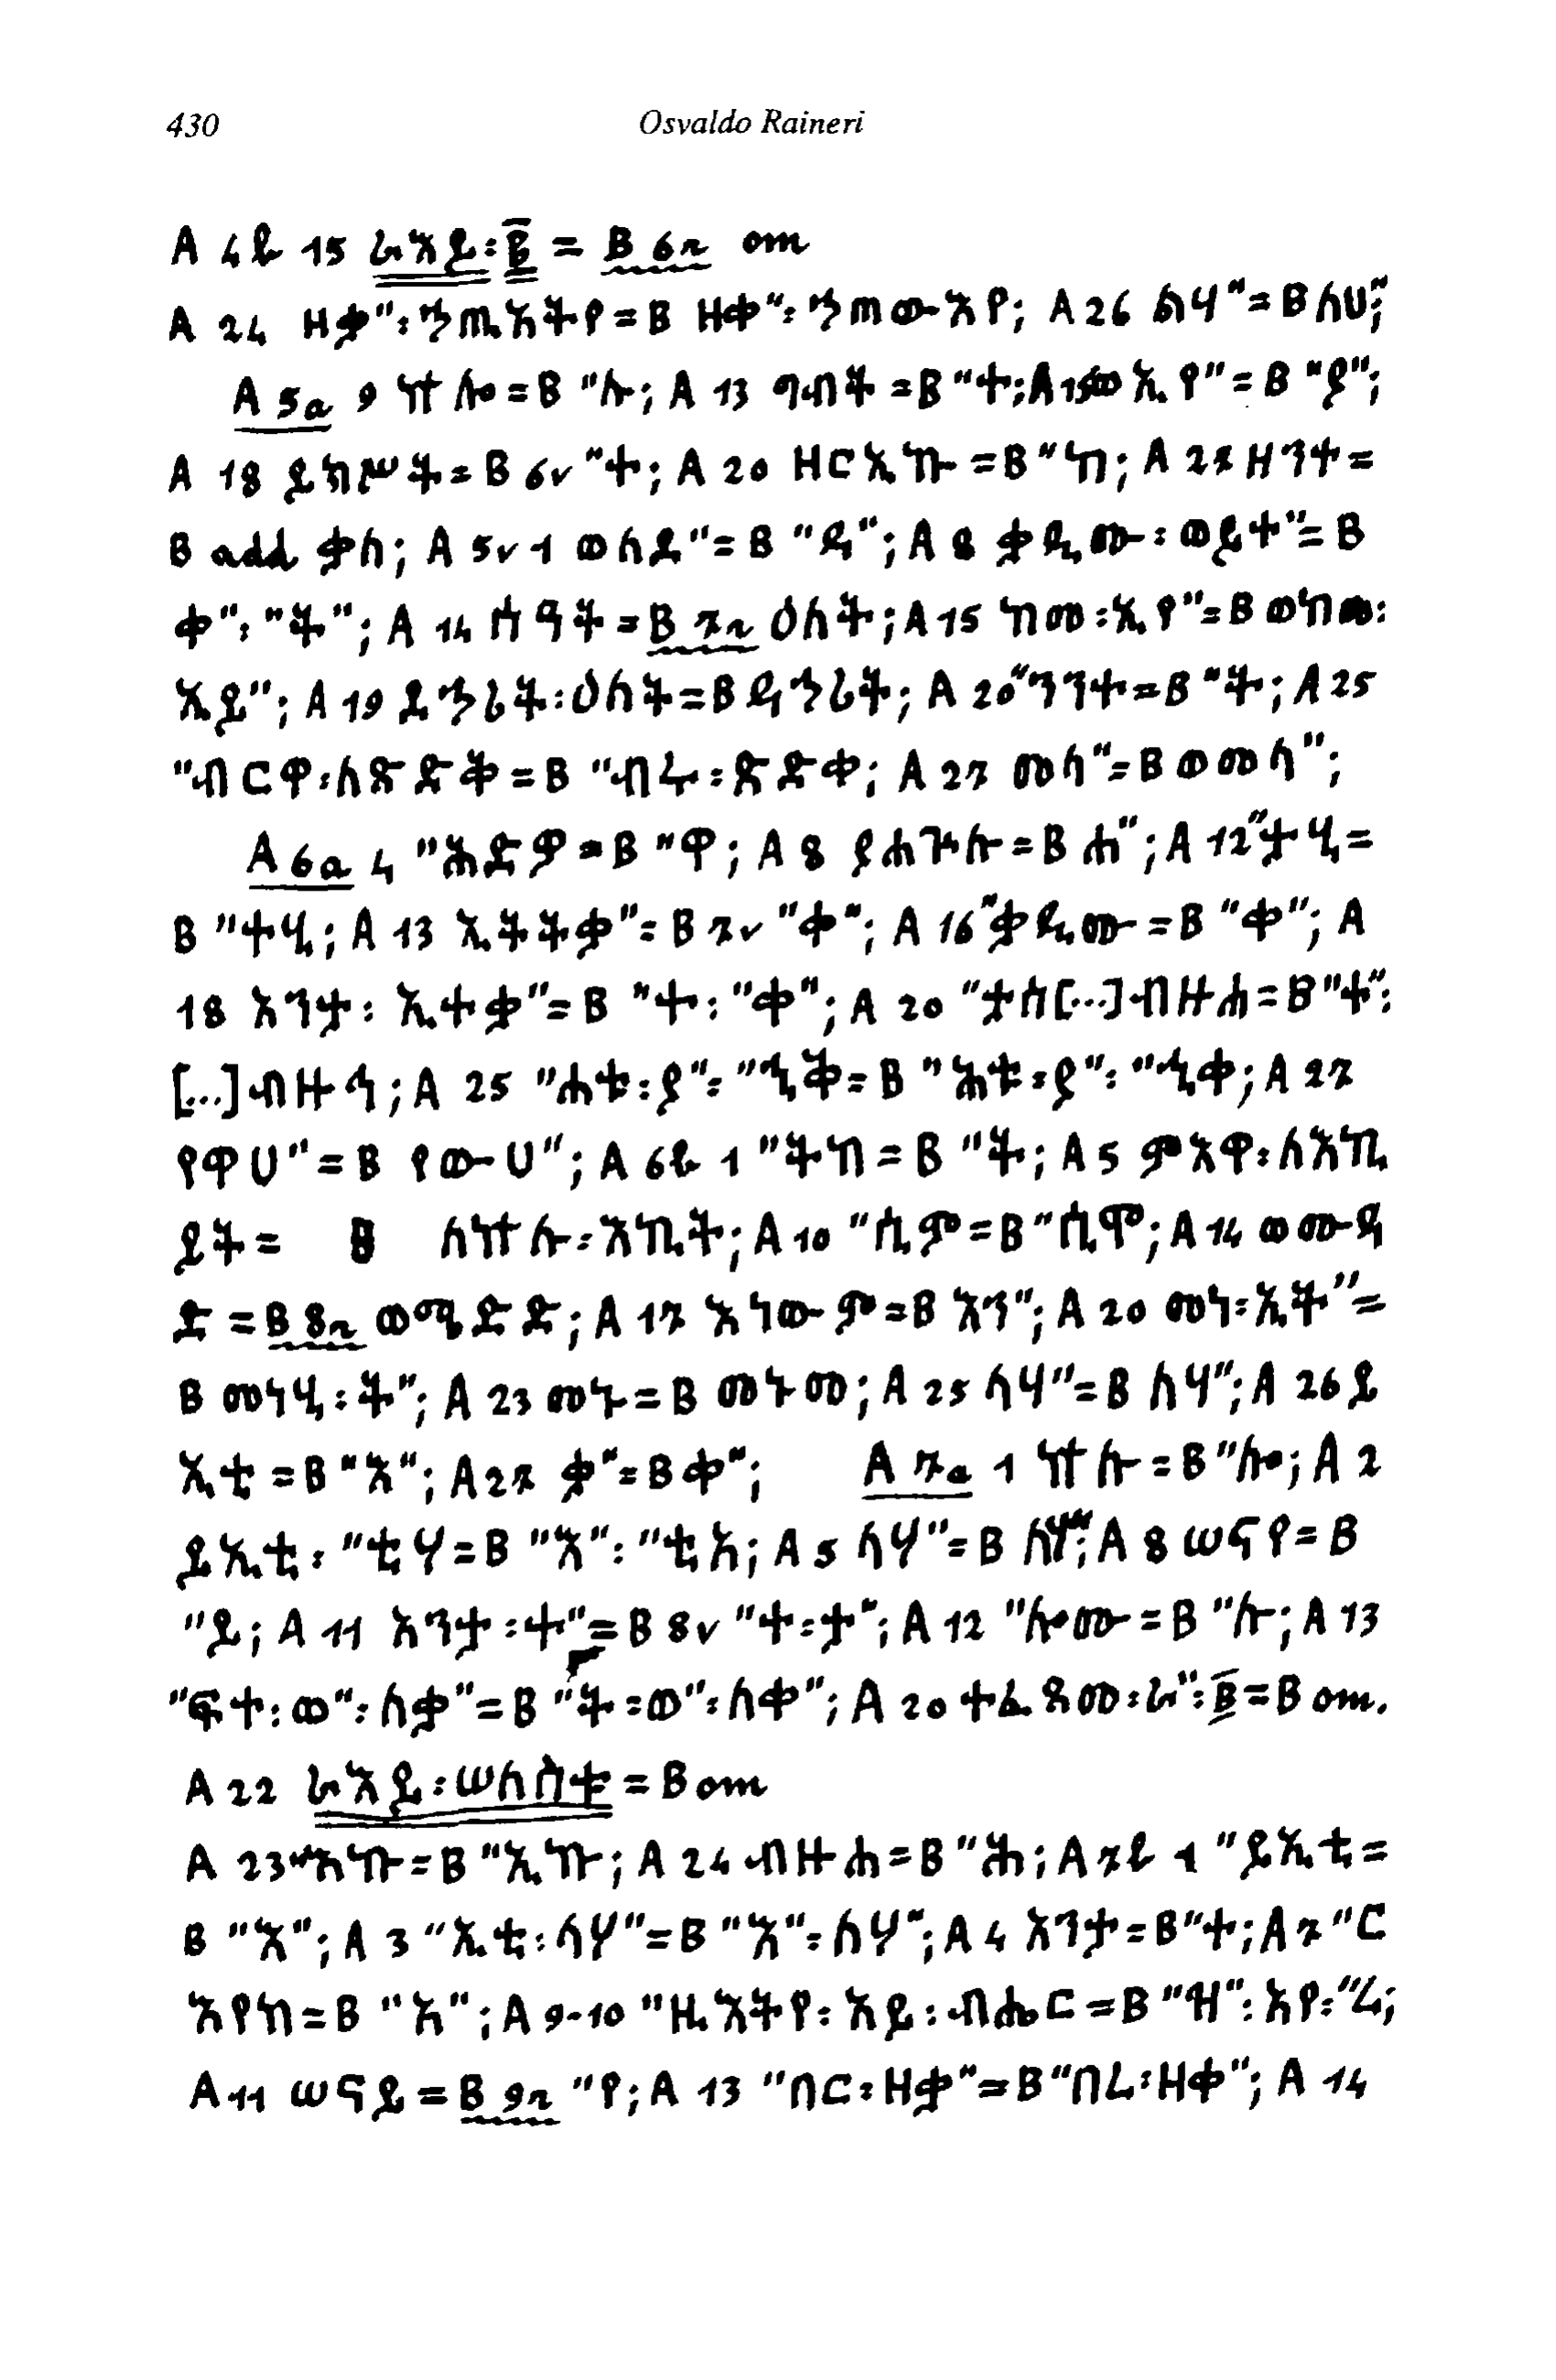 430 Osvaldo Raineri
A 4b 15 ራእይ፡፪ = B 6r om
A 24 ዘቃ"፡ኀጢአትየ = B ዘቀ"፡ኀጠውእየ; A 26 ሰሃ" = B ለሀ";
A 5a 9 ኵሎ = B "ሉ; A 13 ግብት = B "ተ; A 15 ወኢየ" = B "ያ";
A 18 ይከሥት = B 6v "ተ; A 20 ዘርኢኩ = B "ከ; A 27 ዘገተ =
B add ቃለ; A 5v 1 ወለደ" = B "ዲ"; A 8 ቃዲሙ፡ወይተ" = B
ቀ"፡"ት"; A 14 ሰዓት = B 7r ዕለት; A 15 ከመ፡ኢየ" = B ወከመ፡
ኢይ"; A 19 ደኀሪት፡ዕለት = B ዲኀሪት; A 20 "ገገተ = B "ት; A 25
"ብርዋ፡ለጽድቅ = B "ብሩ፡ጽድቀ; A 27 መለ" = B ወመለ";
A 6a 4 "ሕድዎ = B "ዋ; A 8 ያሐጕሉ = B ሐ"; A 12 "ታሂ =
B "ተሂ; A 13 ኢትትቃ" = B 7v "ቀ"; A 16 "ቃዲሙ = B "ቀ"; A
18 እንታ፡ ኢተቃ" = B "ተ፡"ቀ"; A 20 "ታሰ[...]ብዙሐ = B "ተ"፡
[...]ብዙኃ; A 25 "ሐቱ፡ያ"፡"ኂቅ = B "ሕቱ፡ያ"፡"ኂቀ; A 27
የዋሀ" = B የውሀ"; A 6b 1 "ትከ = B "ት; A 5 ምእዋ፡ለእኪ
ይት = B ለኵሉ፡እኪት; A 10 "ሲም = B "ሲሞ; A 14 ወሙዓ
ድ = B 8r ወማድድ; A 17 እነውም = B እን"; A 20 መነ፡ኢት" =
B መነሂ፡ት"; A 23 መኑ = B መኑመ; A 25 ሳሃ" = B ለሃ"; A 26 ይ
ኢቲ = B "እ"; A 27 ቃ" = B ቀ"; A 7a 1 ኵሉ = B "ሎ; A 2
ይኢቲ፡"ቲሃ = B "እ"፡"ቲአ; A 5 ሳሃ" = B ለሃ"; A 8 ሠናየ = B
"ይ; A 11 እንታ፡ተ" = B 8v "ተ፡ታ"; A 12 "ሎሙ = B "ሉ; A 13
"ፍተ፡ወ"፡ለቃ" = B "ት፡ወ"፡ለቀ"; A 20 ተፈጸመ፡ራ"፡፪ = B om.
A 22 ራእይ፡ሠለስቱ = B om
A 23 "አኩ = B "ኢኩ; A 24 ብዙሐ = B "ሕ; A 7b 1 "ይኢቲ =
B "እ"; A 3 "ኢቲ፡ሳሃ" = B "እ"፡ለሃ"; A 4 እንታ = B "ተ; A 7 "ር
እየከ = B "አ"; A 9-10 "ዚአትየ፡አይ፡ብሔር = B "ዛ"፡አየ፡"ሬ;
A 11 ሠናይ = B 9r "የ; A 13 "በር፡ዘቃ" = B "በረ፡ዘቀ"; A 14